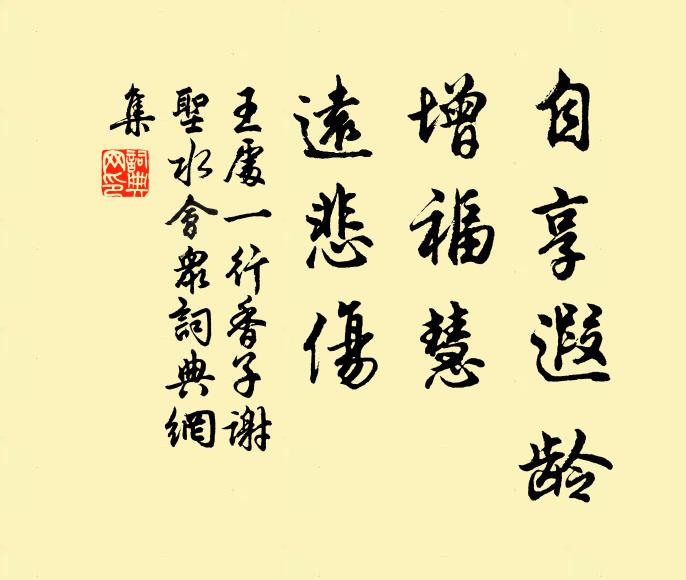 自享遐龄
增福慧
遠悲傷
王處一行香子謝
聖水會眾詞典網
集
詞典
网印